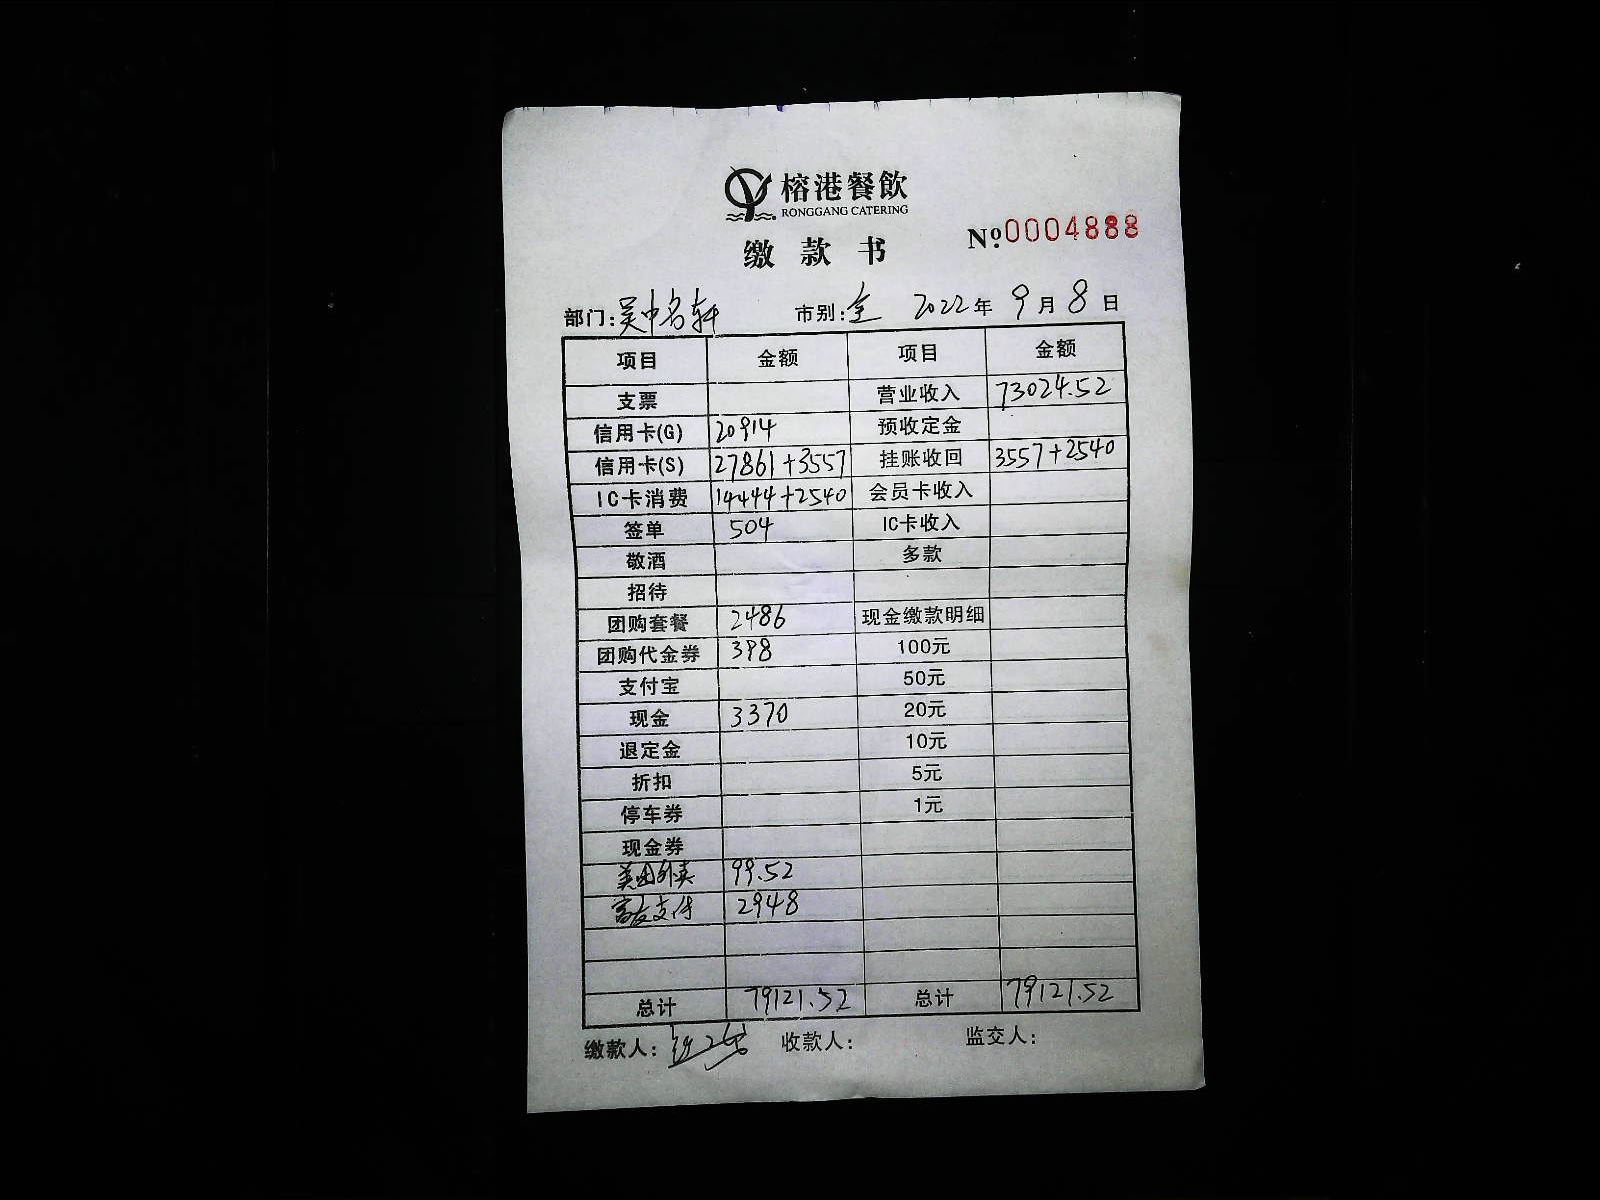 榕港餐飲
RONGGANG CATERING
缴款书
Nº:0004888
部门:吴中名轩 市别:全 2022年9月8日
项目 金额 项目 金额
支票 营业收入 73024.52
信用卡(G) 20914 预收定金
信用卡(S) 27861+3557 挂账收回 3557+2540
IC卡消费 14444+2540 会员卡收入
签单 504 IC卡收入
敬酒 多款
招待
团购套餐 2486 现金缴款明细
团购代金券 398 100元
支付宝 50元
现金 3370 20元
退定金 10元
折扣 5元
停车券 1元
现金券
美团外卖 99.52
富友支付 2948
总计 79121.52 总计 79121.52
缴款人: 收款人: 监交人: